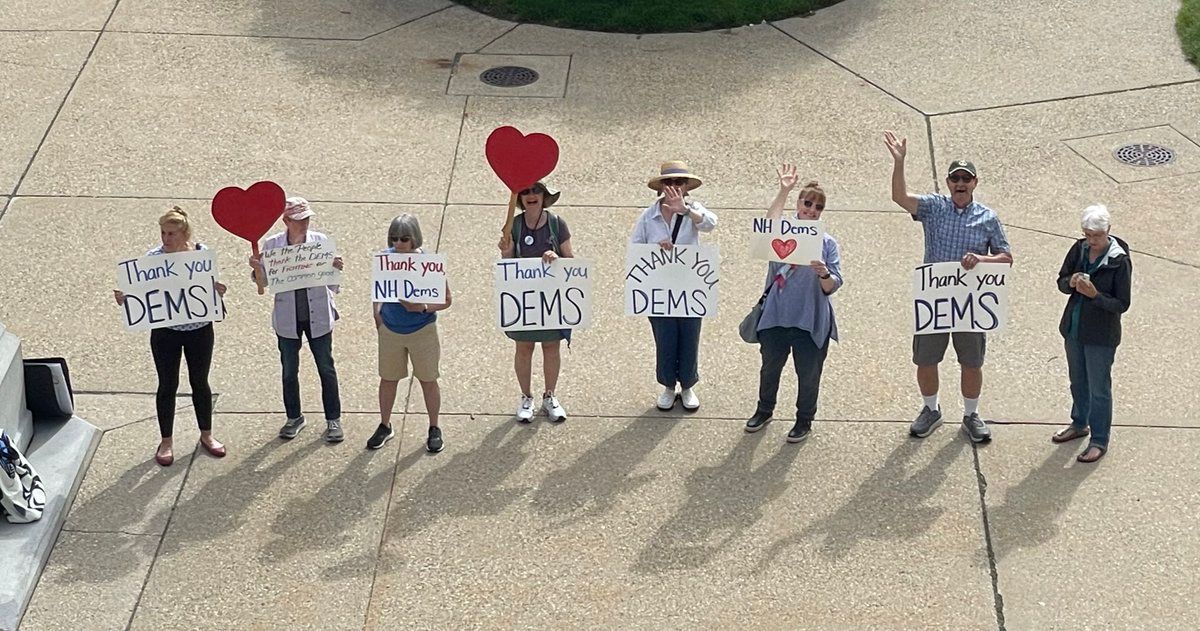 Thank you
DEMS!
We the People
thank the DEMS
for FIGHTING for
The common good
Thank you,
NH Dems
Thank you
DEMS
THANK YOU
DEMS
NH Dems
Thank you
DEMS